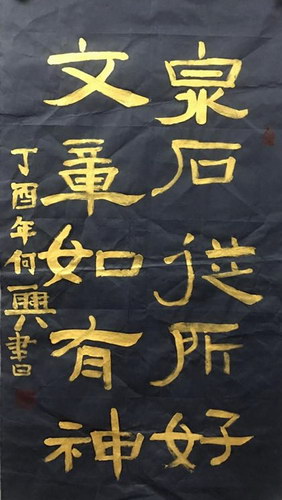 泉石從所好
文章如有神
丁酉年何興書